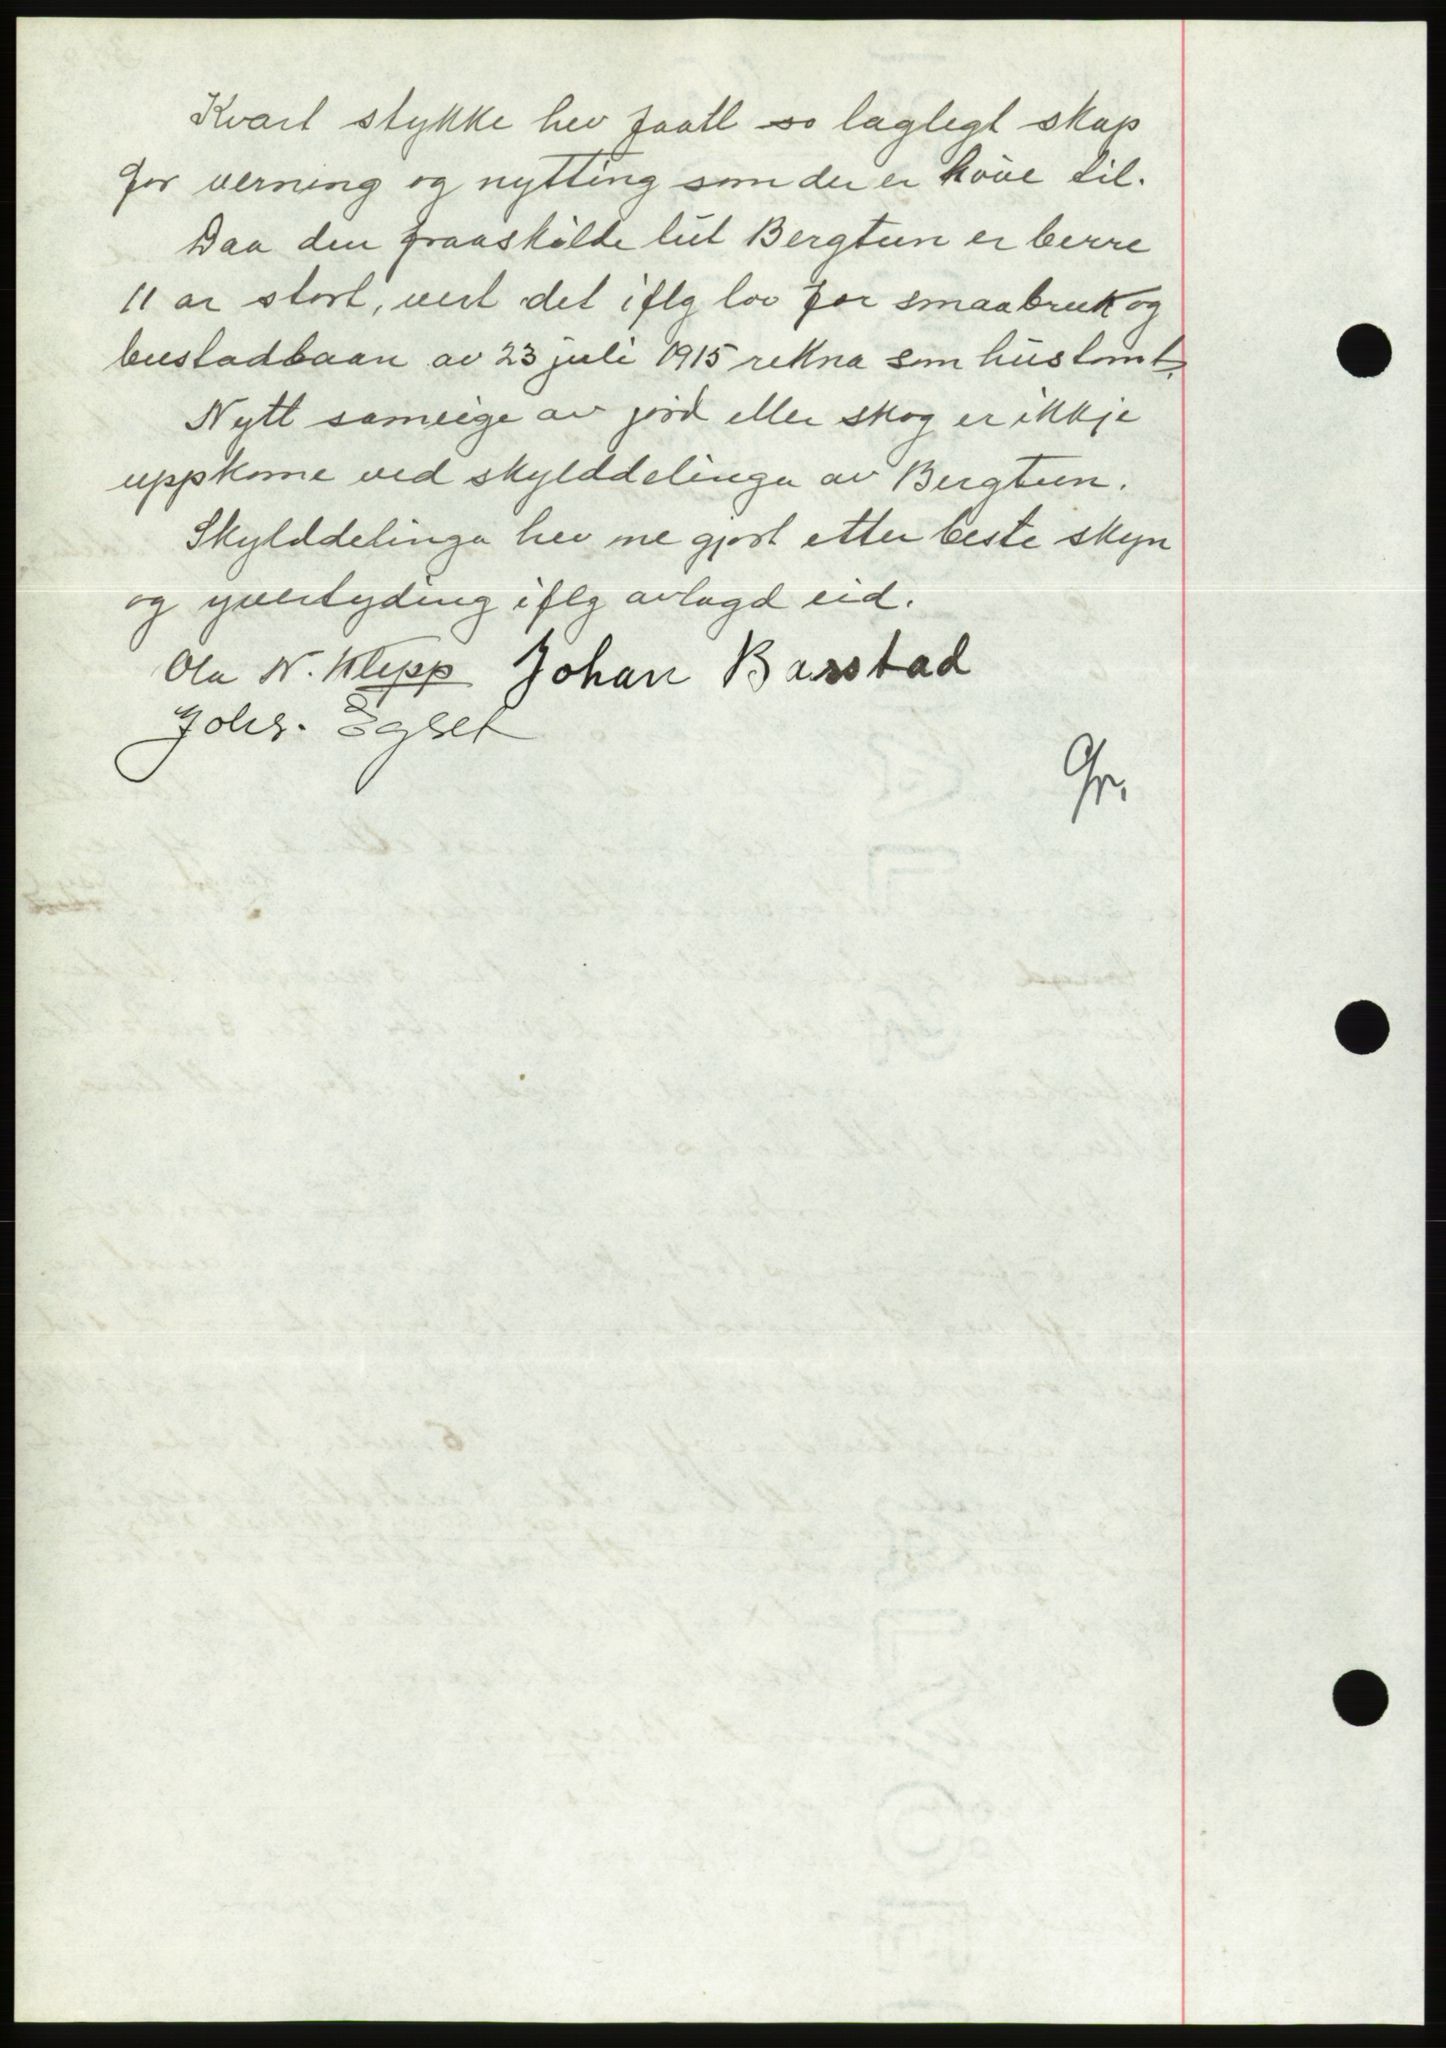 Kvart stykke hev faatt so laglegt skap
for verning og nytting som der er høve til.
Daa den fraaskilde lut Bergtun er berre
11 ar stort, vert det iflg lov for smaabruk og
bustadbaan av 23 juli 1915 rekna som hustomt.
Nytt sameige av jord eller skog er ikkje
uppkome ved skylddelinga av Bergtun.
Skylddelinga hev me gjort etter beste skyn
og yvertyding iflg avlagd eid.
Ola N. Klepp Johan Barstad
Johs. Egset
Gr.